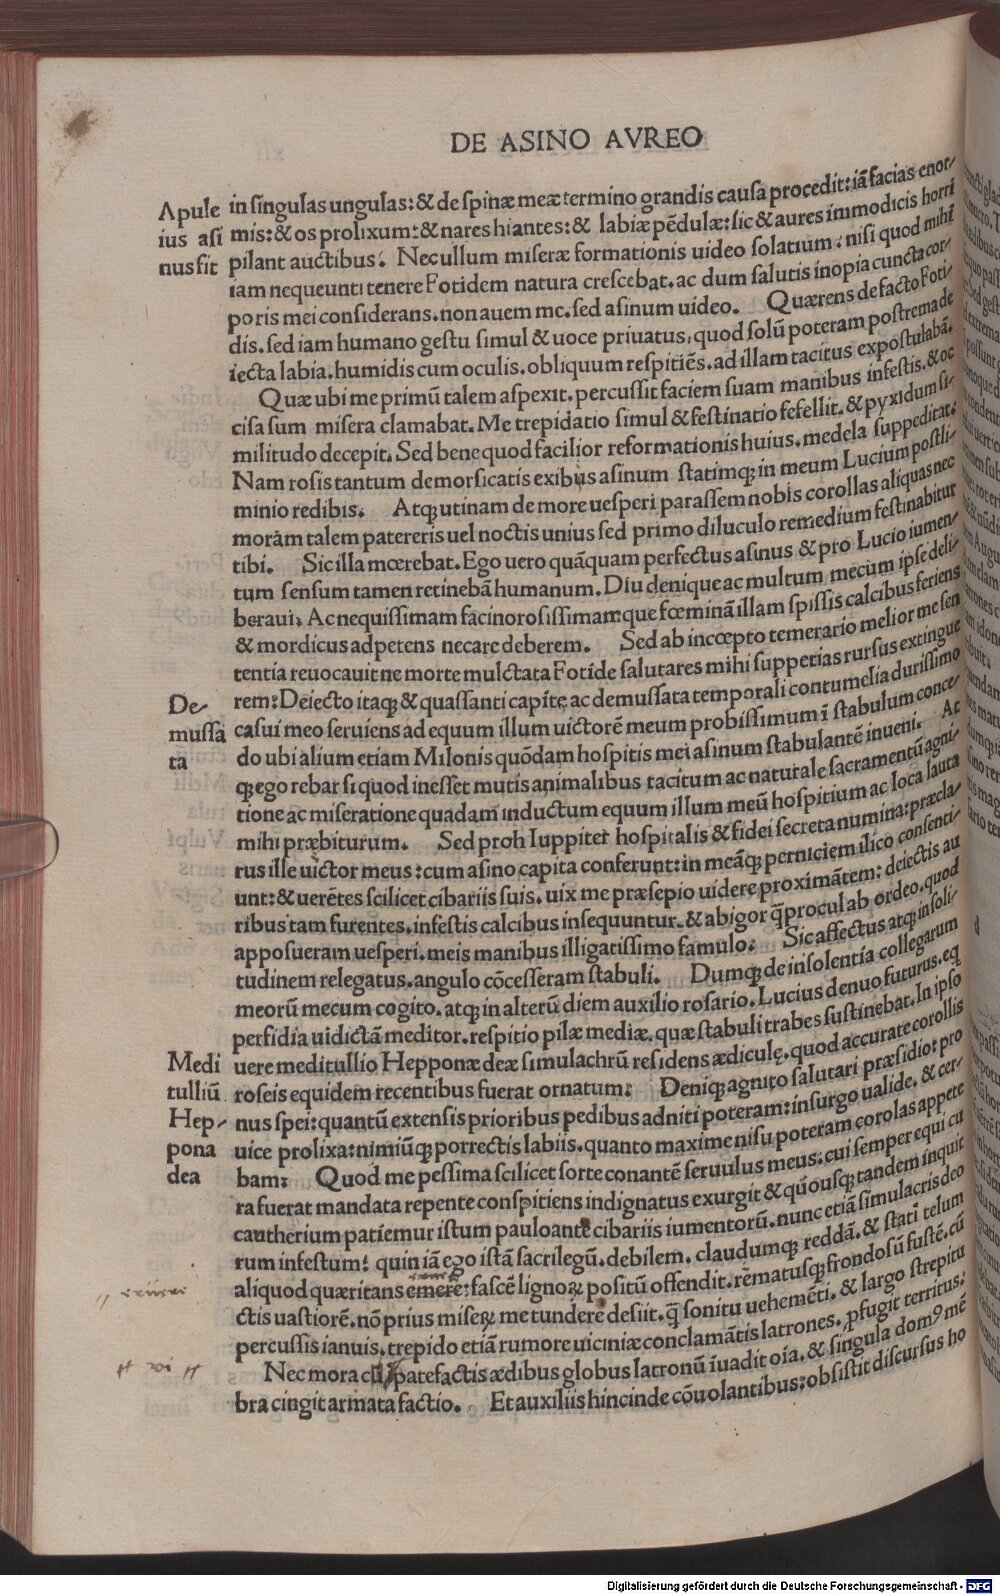 DE ASINO AVREO
Apule
ius asi
nus fit
in singulas ungulas: & de spinæ meæ termino grandis causa procedit: iā facias enor-
mis: & os prolixum: & nares hiantes: & labiæ pēdulæ: sic & aures immodicis horri
pilant auctibus. Nec ullum miseræ formationis uideo solatium, nisi quod mihi
iam nequeunti tenere Fotidem natura crescebat. ac dum salutis inopia cuncta cor-
poris mei considerans. non auem me. sed asinum uideo. Quærens de facto Foti-
dis. sed iam humano gestu simul & uoce priuatus, quod solū poteram postrema de
iecta labia. humidis cum oculis. obliquum respitiēs. ad illam tacitus expostulabā.
Quæ ubi me primū talem aspexit. percussit faciem suam manibus infestis. & oc
cisa sum misera clamabat. Me trepidatio simul & festinatio fefellit. & pyxidum si-
militudo decepit. Sed bene quod facilior reformationis huius. medela suppeditat.
Nam rosis tantum demorsicatis exibis asinum statimq; in meum Lucium postli-
minio redibis. Atq; utinam de more uesperi parassem nobis corollas aliquas nec
moram talem patereris uel noctis unius sed primo diluculo remedium festinabitur
tibi. Sic illa mœrebat. Ego uero quāquam perfectus asinus & pro Lucio iumen-
tum sensum tamen retinebā humanum. Diu denique ac multum mecum ipse deli-
beraui. Ac nequissimam facinorosissimamque fœminā illam spissis calcibus feriens
& mordicus adpetens necare deberem. Sed ab incœpto temerario melior me sen
tentia reuocauit ne morte mulctata Fotide salutares mihi suppetias rursus extingue
De-
mussa
ta
rem: Deiecto itaq; & quassanti capite ac demussata temporali contumelia durissimo
casui meo seruiens ad equum illum uictorē meum probissimum ī stabulum conce-
do ubi alium etiam Milonis quōdam hospitis mei asinum stabulantē inueni. At
q; ego rebar si quod inesset mutis animalibus tacitum ac naturale sacramentū agni-
tione ac miseratione quadam inductum equum illum meū hospitium ac loca lauta
mihi præbiturum. Sed proh Iuppiter hospitalis & fidei secreta numina: præcla-
rus ille uictor meus: cum asino capita conferunt: in meāq; perniciem ilico consenti-
unt: & uerētes scilicet cibariis suis. uix me præsepio uidere proximātem: deiectis au
ribus tam furentes. infestis calcibus insequuntur. & abigor q̄ procul ab ordeo. quod
apposueram uesperi. meis manibus illi gratissimo famulo. Sic affectus atq; in soli-
tudinem relegatus. angulo cōcesseram stabuli. Dumq; de insolentia collegarum
meorū mecum cogito. atq; in alterū diem auxilio rosario. Lucius denuo futurus. eq
perfidia uidictā meditor. respitio pilæ mediæ. quæ stabuli trabes sustinebat. In ipso
Medi
tulliū
Hep-
pona
dea
uere meditullio Hepponæ deæ simulachrū residens ædiculę. quod accurate corollis
roseis equidem recentibus fuerat ornatum: Deniq; agnito salutari præsidio: pro
nus spei: quantū extensis prioribus pedibus adniti poteram: insurgo ualide. & cer-
uice prolixa: nimiūq; porrectis labiis. quanto maxime nisu poteram corolas appete
bam: Quod me pessima scilicet sorte conantē seruulus meus: cui semper equi cu
ra fuerat mandata repente conspitiens indignatus exurgit & qūousq; tandem inquit
cautherium patiemur istum pauloante cibariis iumentorū. nunc etiā simulacris deo
rum infestum! quin iā ego istā sacrilegū. debilem. claudumq; reddā. & statī telum
aliquod quæritans emere: fascē lignoꝝ positū offendit. rēmatusq; frondosū fustē. cū
ctis uastiorē. nō prius miseꝝ me tundere desiit. q̄ sonitu uehemēti. & largo strepitu
percussis ianuis. trepido etiā rumore uiciniæ conclamātis latrones. ꝓfugit territus.
Nec mora cū patefactis ædibus globus latronū īuadit oīa. & singula domꝰ mē
bra cingit armata factio. Et auxiliis hincinde cōuolantibus: obsistit discursus ho
Digitalisierung gefördert durch die Deutsche Forschungsgemeinschaft - DFG